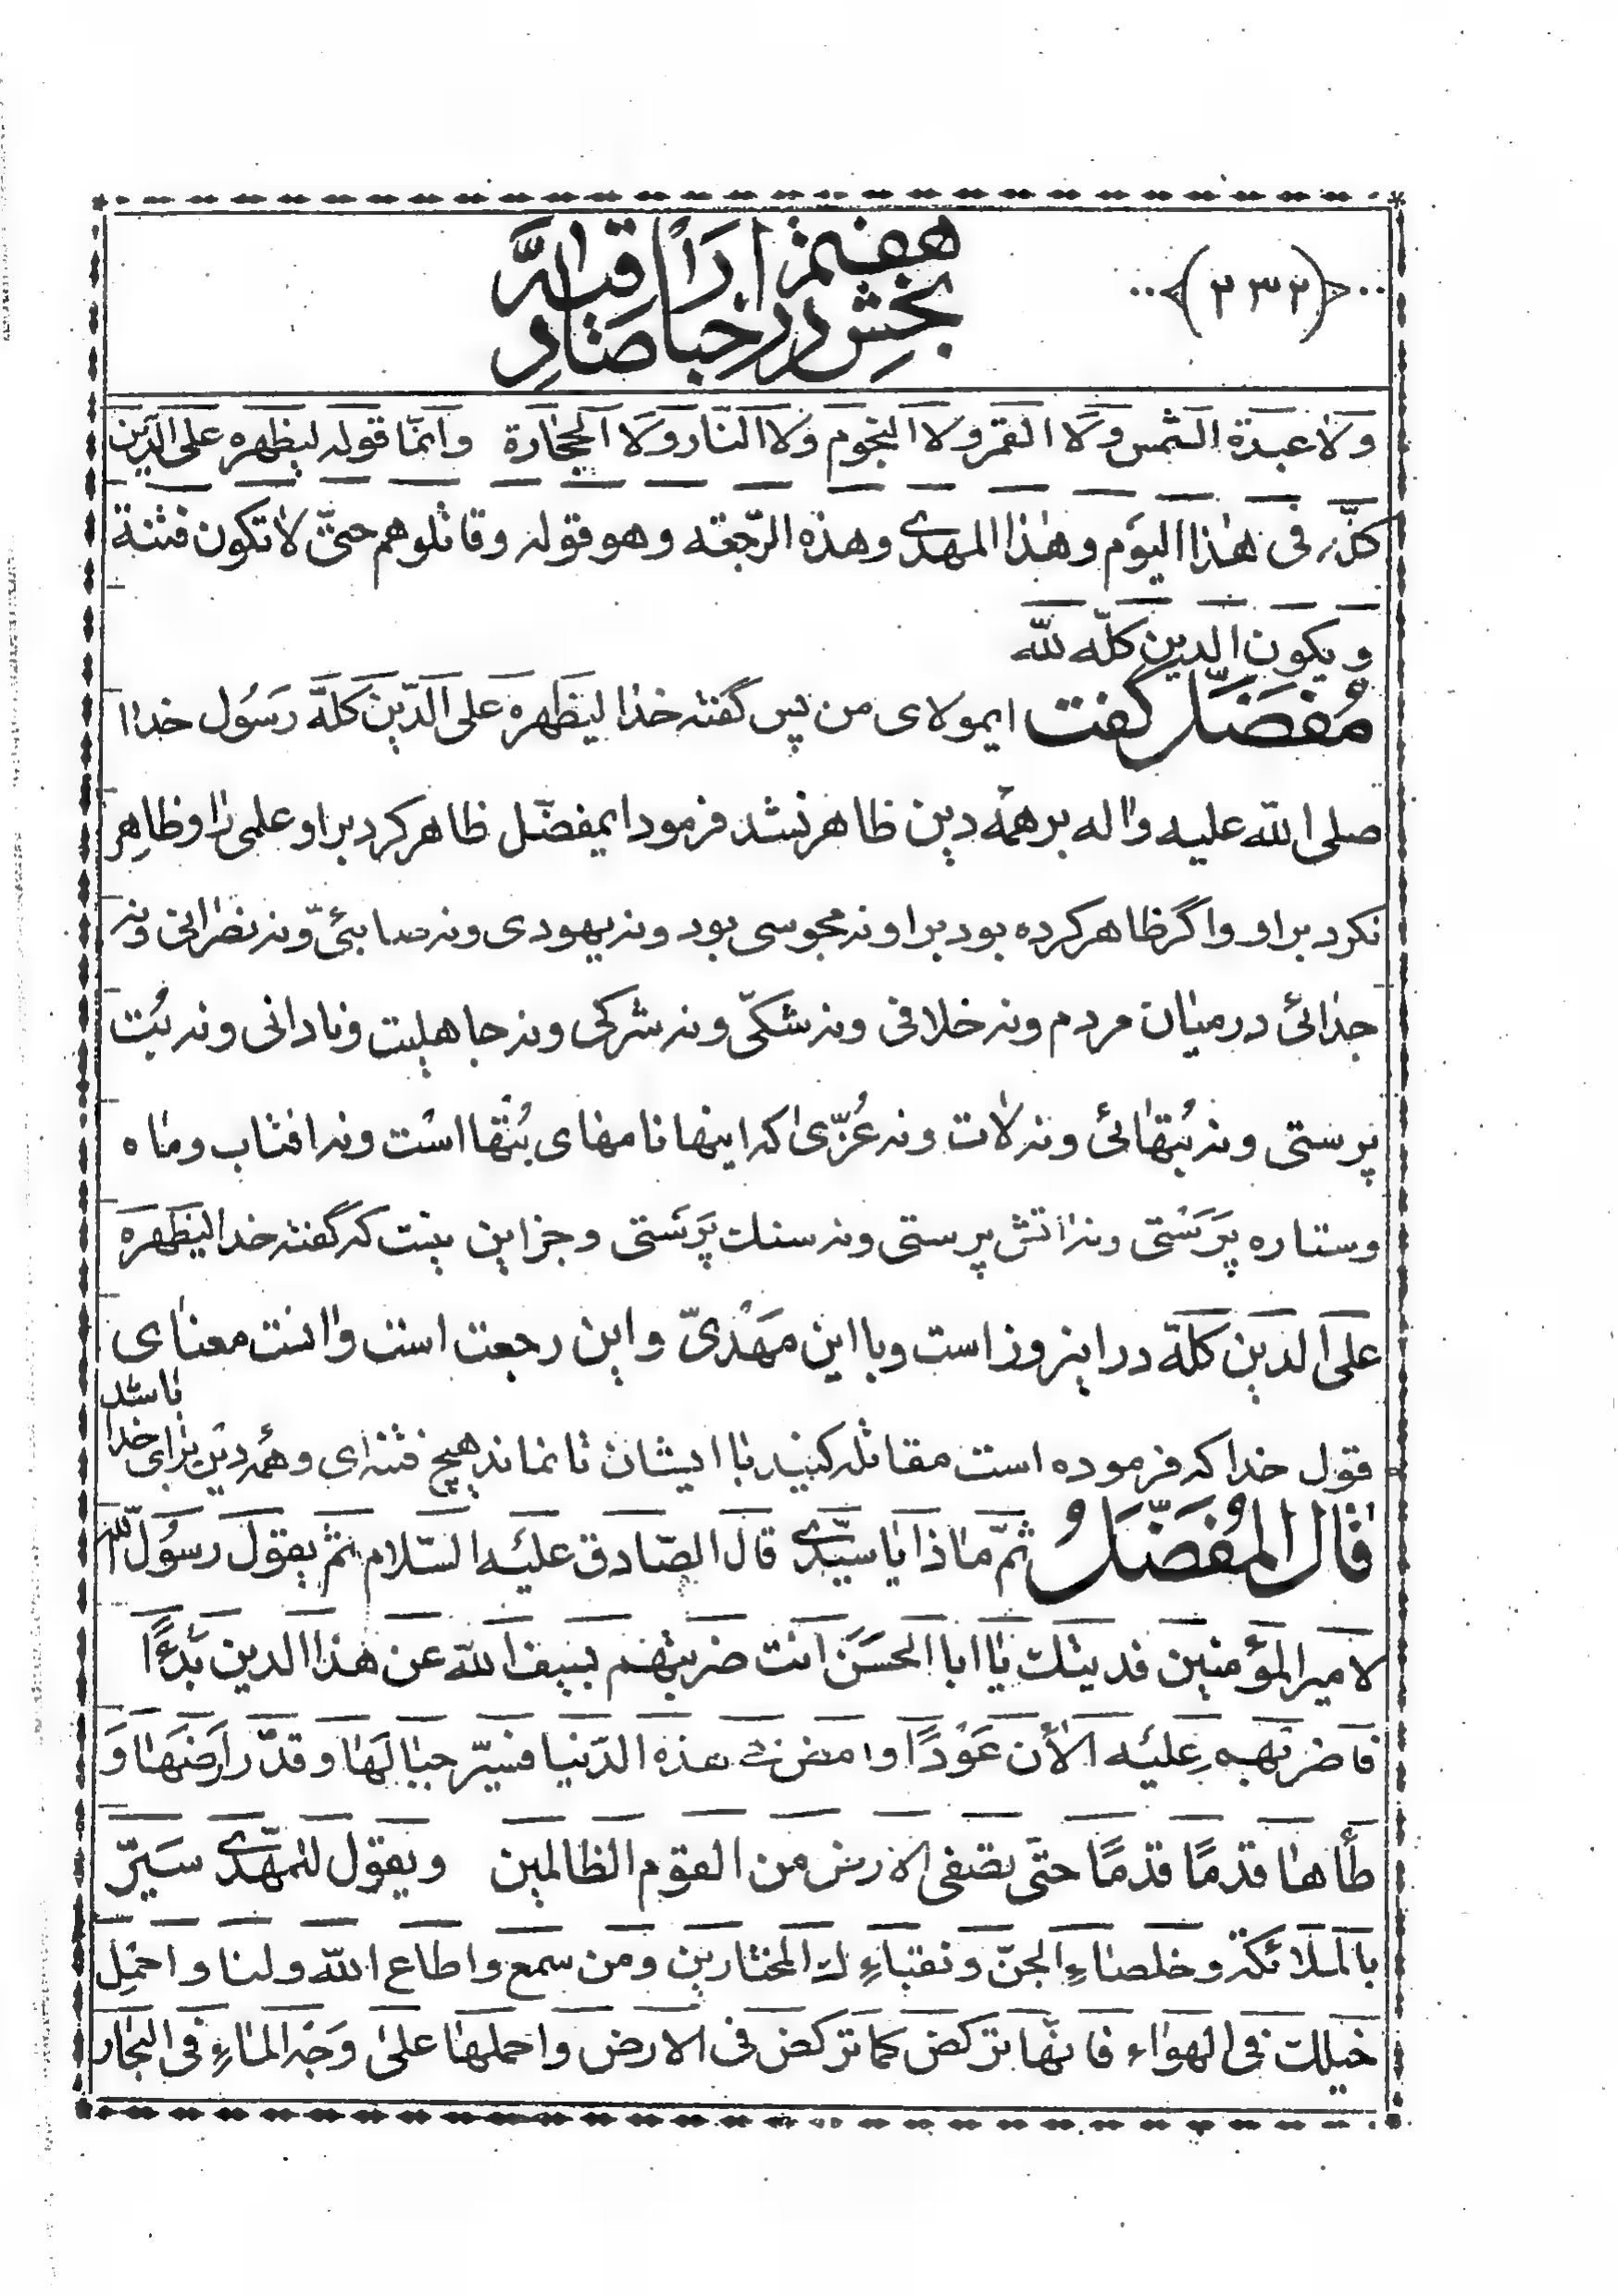 ﴿۲۳۲﴾
بخش هفتم در اخبار صادقیه
وَلاٰ عبدة الشّمس وَلَا القمر ولا النجوم ولا النّار وَلَا الحِجٰارة وانّما قوله ليظهره على الدّين
كلّه فى هٰذا اليوَم وهٰذا المهدىّ وهذه الرّجعة وهو قوله وقاتلوهم حتىّ لاٰ تكون فتنة
و يكون الدين كلّه للّه
مُفَضَّل گفت ايمولاى من پس گفته خدا ليظهره على الدّين كلّه رَسُول خدا
صلى اللّه عليه واٰله بر همه دين ظاهر نشد فرمود ايمفضّل ظاهر كرد بر او علمى را و ظاهِر
نكرد بر او واگر ظاهر كرده بود بر او نه مجوسى بود ونه يهودى ونه صابئىّ ونه نصرٰانى ونه
جدٰائى در ميٰان مردم ونه خلافى ونه شكّى ونه شركى ونه جاهليت ونادانى ونه بُت
پرستى ونه بُتهٰائى ونه لاٰت ونه عُزّىٰ كه اينها نامهاى بُتها است ونه افتاب ومٰاه
وستاره پَرَسْتى ونه اٰتش پرستى ونه سنك پَرَستى وجز اين نيست كه گفته خدا ليظهره
على الدين كلّه در اينروز است وبا اين مَهْدىّ واين رجعت است واٰنست معنٰاى
قول خدا كه فرموده است مقاتله كنيد با ايشان تا نماند هيچ فتنهٔ اى وهمه دين برٰاى خدا باشد
قٰال المُفَضَّلُ ثمّ مٰاذا يٰا سيّدى قال الصّادق عليَه السّلام ثمّ يقول رسوُل اللّه
لامير المؤمنين فديتك يٰا ابا الحسَن انت ضربتهم بسيف اللّه عن هٰذا الدين بَدْءًا
فاضربهم عليَه الاٰن عَوْدًا وامض فى هذه الدّنيا فسيّر جبٰالهٰا وقدّر ارضهٰا وَ
طأهٰا قدمًا قدمًا حتّى تصفى الارض من القوم الظالمين ويقول للمهدىّ سَيِرّ
بالملائكة وخلصاءِ الجنّ ونقباءِك المختارين ومن سمع واطاع اللّه ولنا واحمِل
خيلك فى الهوٰاء فانّها تركض كما تركض فى الارض واحملهٰا علىٰ وَجْه المٰاءِ فى البحٰار